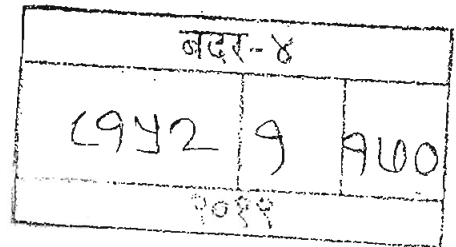 बदर-४
८१५२ १ १७०
२०११